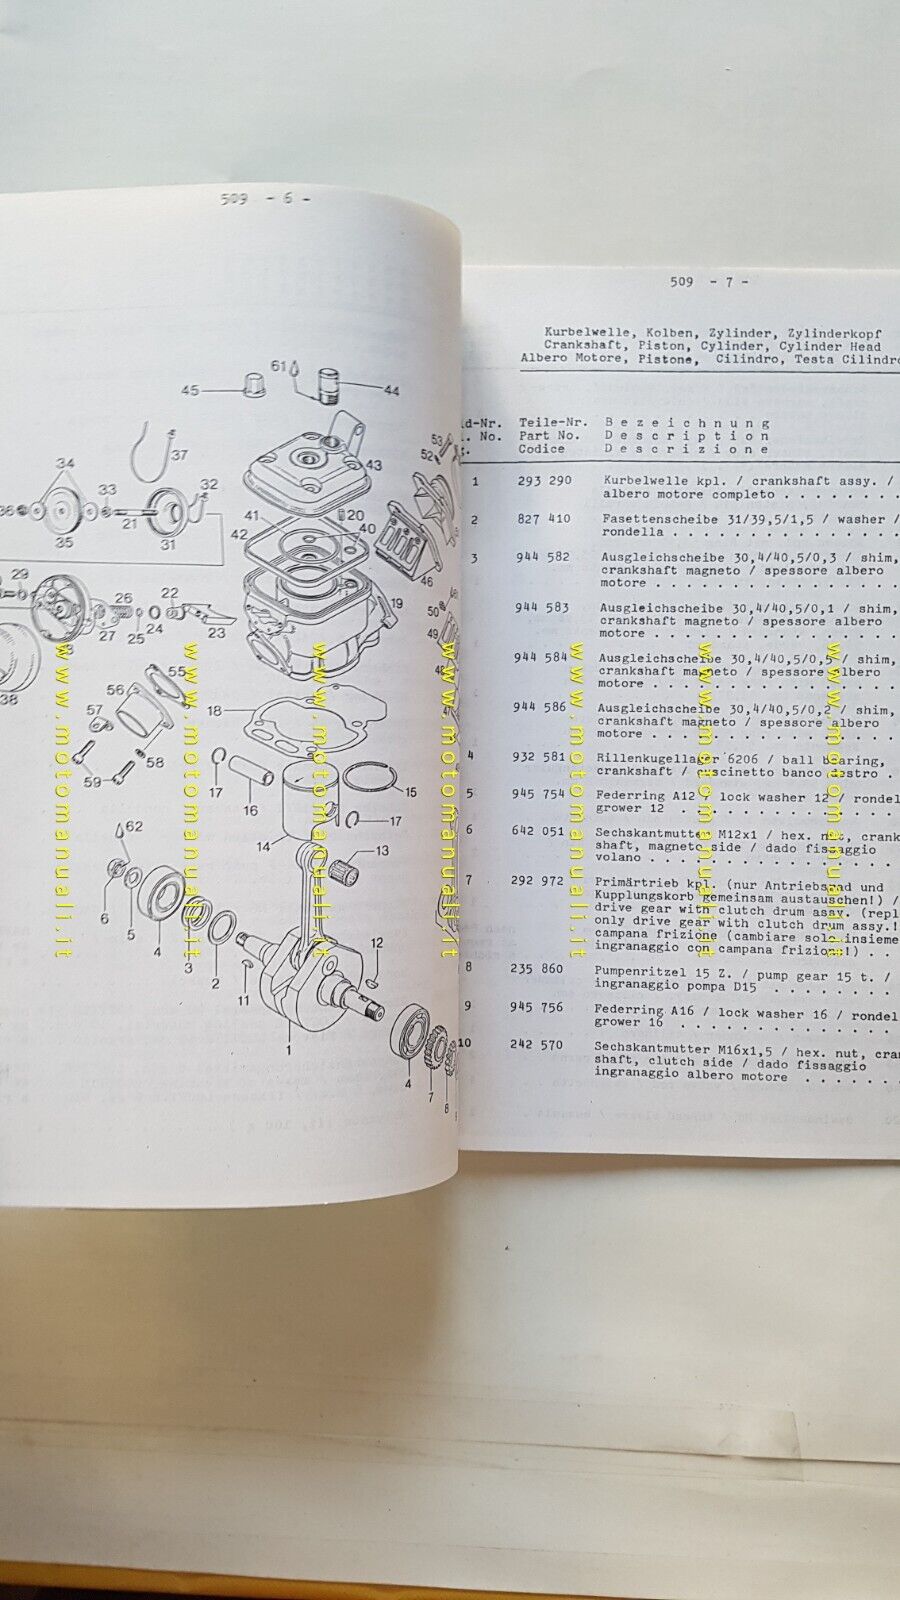 509 - 6 -
61
45
44
43
53
52
37
34
33
32
36
21
35
31
41
42
20
40
46
29
26
22
27
25
24
23
19
50
49
48
38
55
56
57
58
59
18
17
16
15
17
14
13
62
6
5
4
3
2
11
12
1
4
7
8
509 - 7 -
Kurbelwelle, Kolben, Zylinder, Zylinderkopf
Crankshaft, Piston, Cylinder, Cylinder Head
Albero Motore, Pistone, Cilindro, Testa Cilindro
d-Nr. Teile-Nr. Bezeichnung
. No. Part No. Description
Codice Descrizione
1 293 290 Kurbelwelle kpl. / crankshaft assy. /
albero motore completo . . . . . . . .
2 827 410 Fasettenscheibe 31/39,5/1,5 / washer /
rondella . . . . . . . . . . . . . . .
3 944 582 Ausgleichscheibe 30,4/40,5/0,3 / shim,
crankshaft magneto / spessore albero
motore . . . . . . . . . . . . . . . .
944 583 Ausgleichscheibe 30,4/40,5/0,1 / shim,
crankshaft magneto / spessore albero
motore . . . . . . . . . . . . . . . .
944 584 Ausgleichscheibe 30,4/40,5/0,5 / shim,
crankshaft magneto / spessore albero
motore . . . . . . . . . . . . . . . .
944 586 Ausgleichscheibe 30,4/40,5/0,2 / shim,
crankshaft magneto / spessore albero
motore . . . . . . . . . . . . . . . .
4 932 581 Rillenkugellager 6206 / ball bearing,
crankshaft / cuscinetto banco destro .
5 945 754 Federring A12 / lock washer 12 / rondel
grower 12 . . . . . . . . . . . . . .
6 642 051 Sechskantmutter M12x1 / hex. nut, crank
shaft, magneto side / dado fissaggio
volano . . . . . . . . . . . . . . . .
7 292 972 Primärtrieb kpl. (nur Antriebsrad und
Kupplungskorb gemeinsam austauschen!) /
drive gear with clutch drum assy. (repl
only drive gear with clutch drum assy.!
campana frizione (cambiare solo insieme
ingranaggio con campana frizione!) . .
8 235 860 Pumpenritzel 15 Z. / pump gear 15 t. /
ingranaggio pompa D15 . . . . . . . .
9 945 756 Federring A16 / lock washer 16 / rondel
grower 16 . . . . . . . . . . . . . .
10 242 570 Sechskantmutter M16x1,5 / hex. nut, cran
shaft, clutch side / dado fissaggio
ingranaggio albero motore . . . . . .
www.motomanuali.it
www.motomanuali.it
www.motomanuali.it
www.motomanuali.it
www.motomanuali.it
www.motomanuali.it
www.motomanuali.it